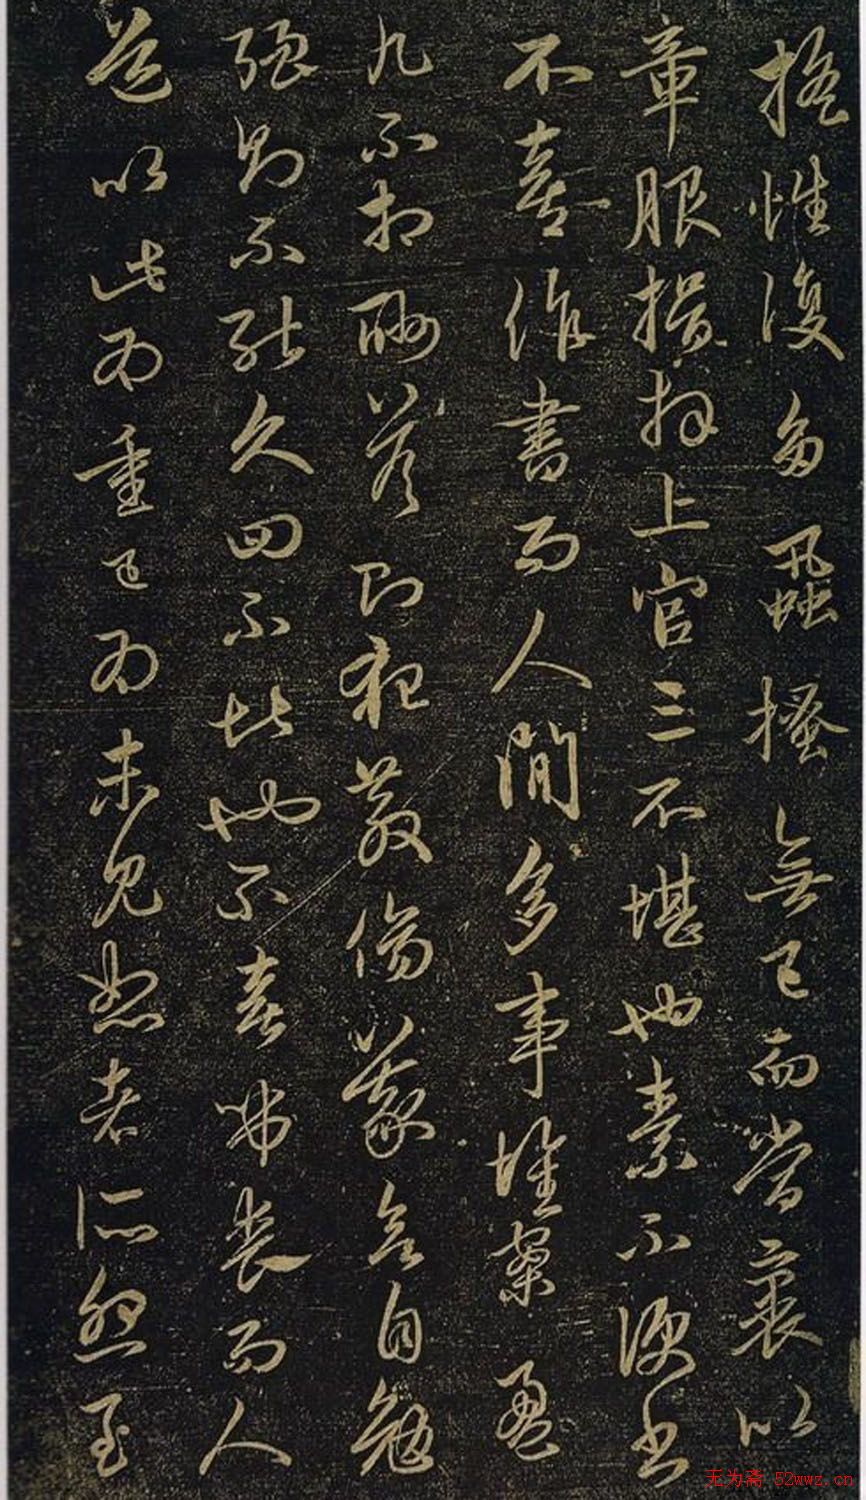 搖性復多蝨搔無已而當裹以
章服揖拜上官三不堪也素不便書
不喜作書而人間多事堆案盈
几不相酬答則犯教傷義欲自勉
強則不能久四不堪也不喜弔喪而人
道以此為重已為未見恕者所怨至
无为斋 52wwz.cn